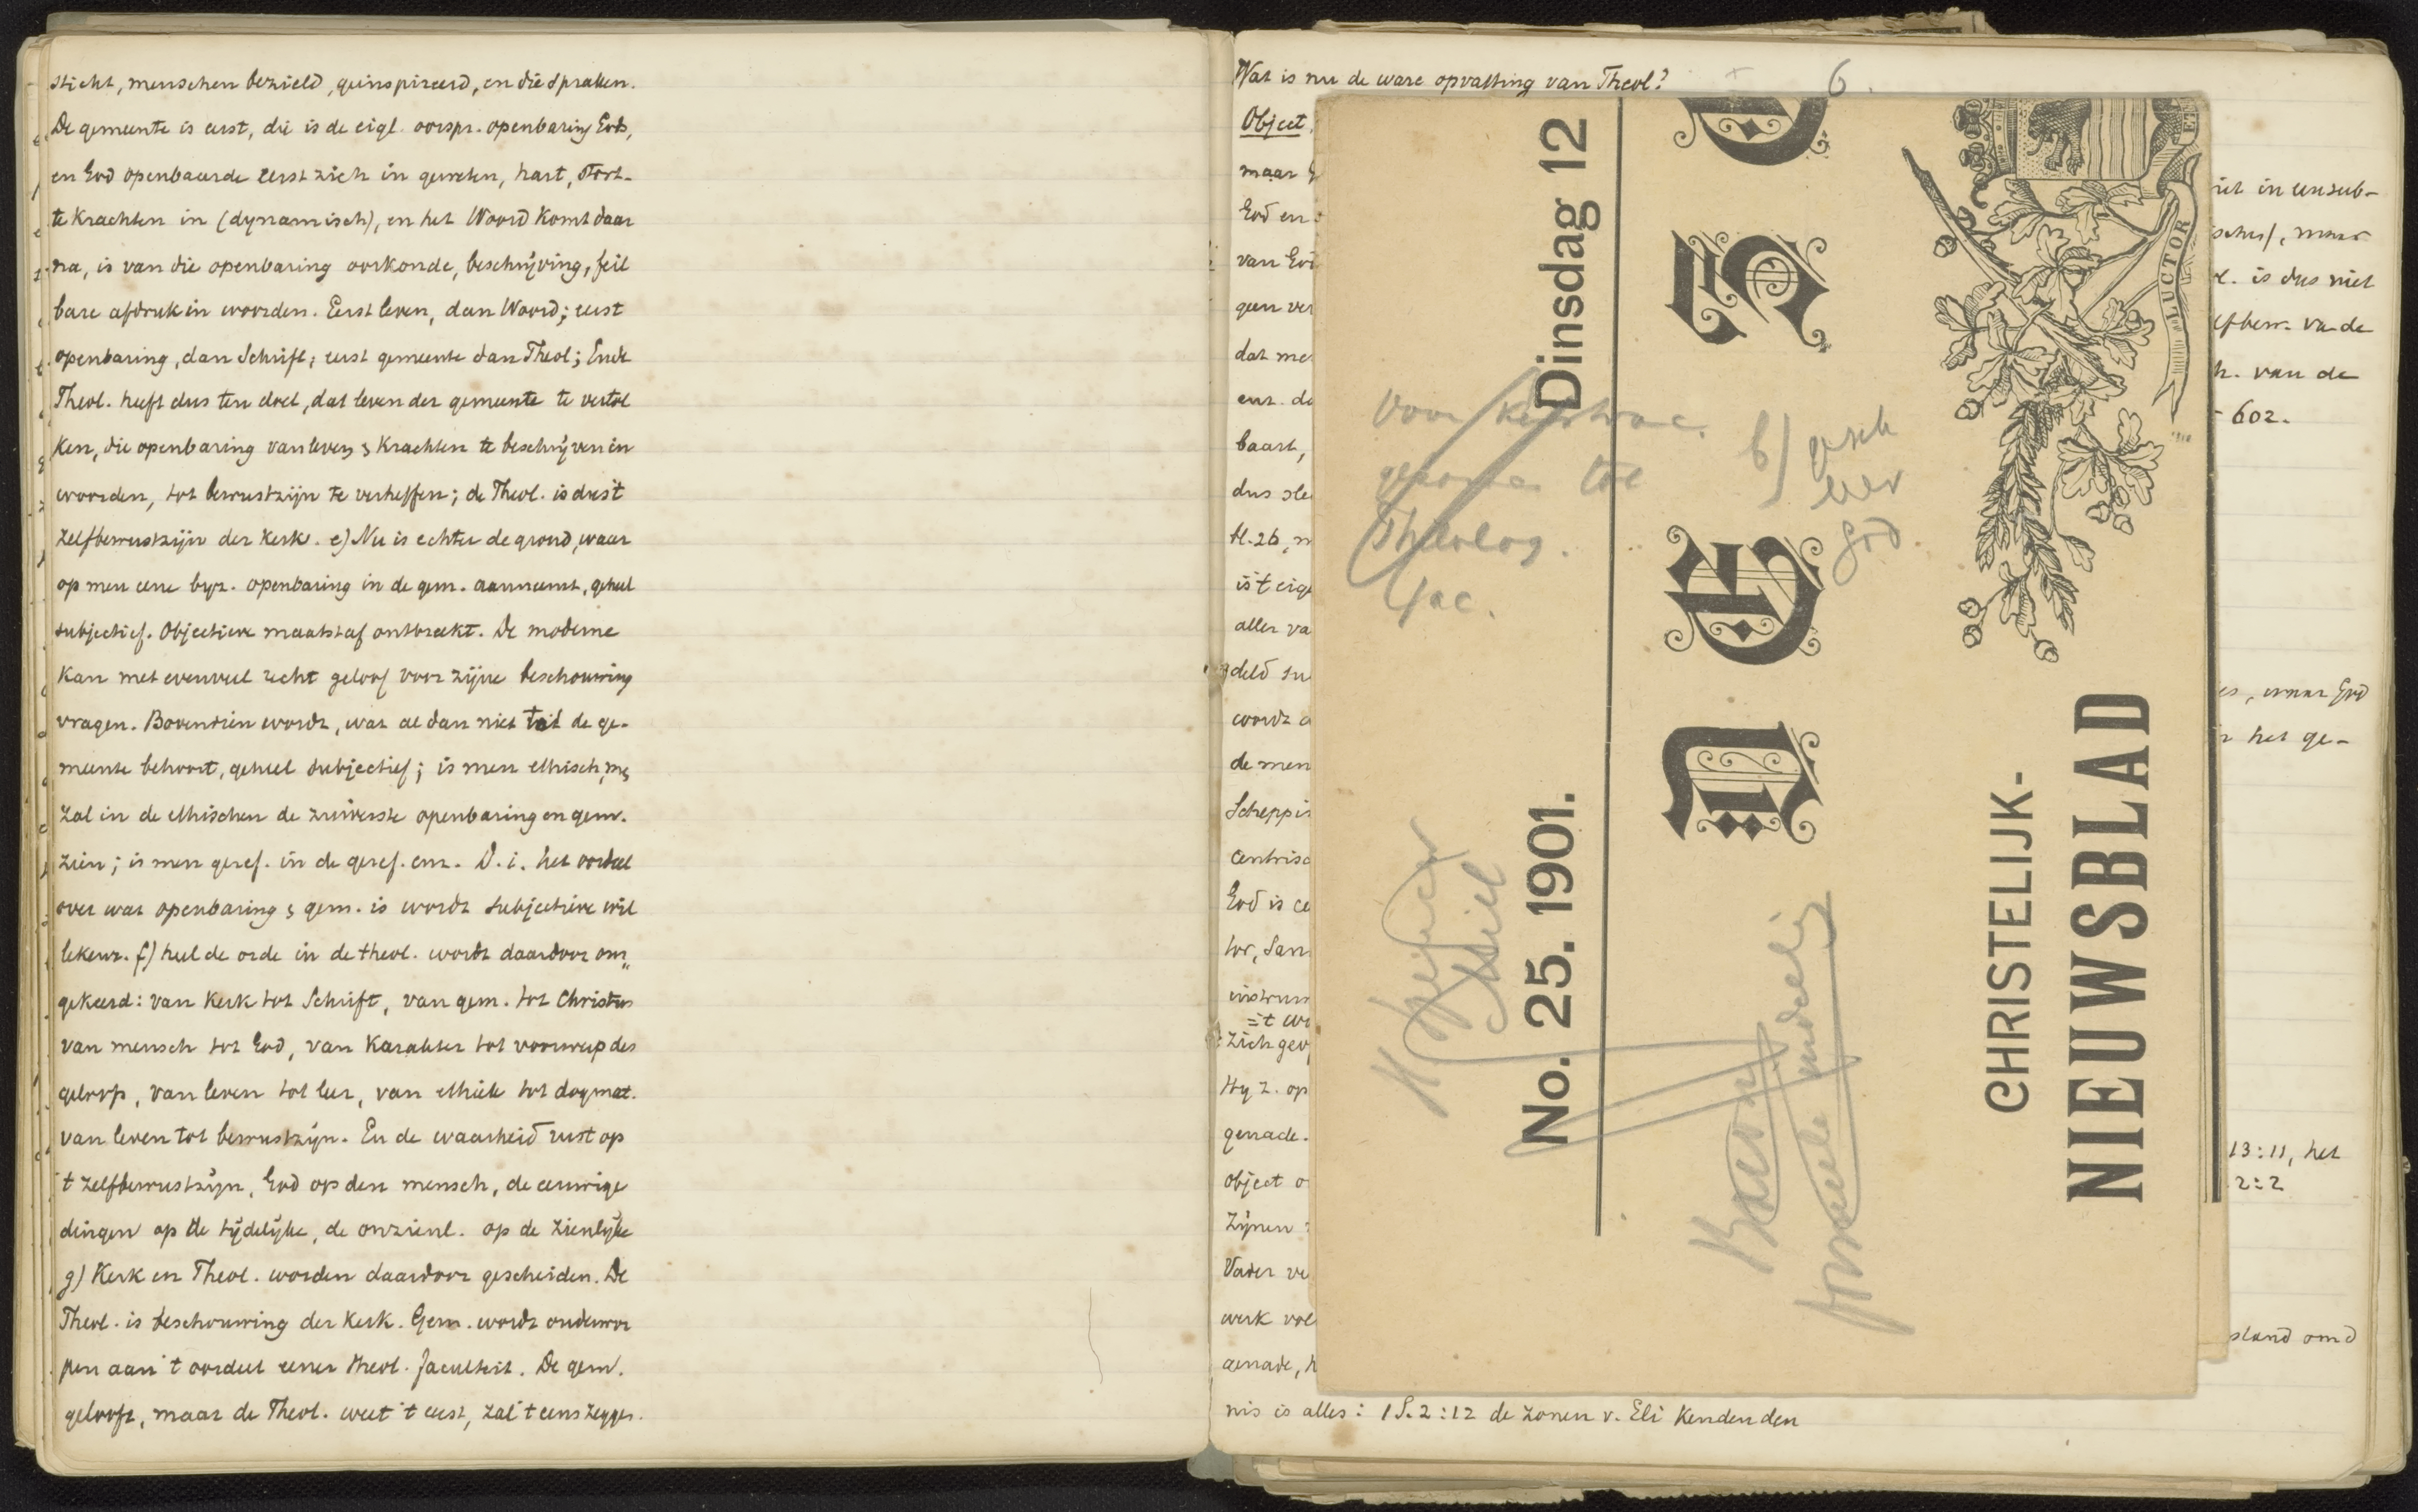 sticht, menschen bezield, geinspireerd, en die spraken.
De gemeente is eerst, die is de eigl. oorspr. openbaring Gods,
en God openbaarde eerst zich in geweten, hart, stort-
te krachten in (dynamisch), en het Woord komt daar
na, is van die openbaring oorkonde, beschrijving, feil
bare afdruk in woorden. Eerst leven, dan Woord; eerst
openbaring, dan Schrift; eerst gemeente dan Theol; En de
Theol. heeft dus ten doel, dat leven der gemeente te vertol
ken, die openbaring van leven & krachten te beschrijven in
woorden, tot bewustzijn te verheffen; de Theol. is dus 't
zelfbewustzijn der Kerk. e) Nu is echter de grond, waar
op men eene byz. openbaring in de gem. aanneemt, geheel
subjectief. Objectieve maatstaf ontbreekt. De moderne
kan met evenveel recht geloof voor zijne beschouwing
vragen. Bovendien wordt, wat al dan niet tot de ge-
meente behoort, geheel subjectief; is men ethisch, men
zal in de ethischen de zuiverste openbaring en gem.
zien; is men geref. in de geref. enz. D.i. het oordeel
over wat openbaring & gem. is wordt subjectieve wil
lekeur. f) heel de orde in de theol. wordt daardoor om„
gekeerd: van Kerk tot Schrift, van gem. tot Christus
van mensch tot God, van karakter tot voorwerp des
geloofs, van leven tot leer, van ethiek tot dogmat.
van leven tot bewustzijn. En de waarheid rust op
't zelfbewustzijn, God op den mensch, de eeuwige
dingen op de tijdelijke, de onzienl. op de zienlijke
g) Kerk en Theol. worden daardoor gescheiden. De
Theol. is beschouwing der Kerk. Gem. wordt onderwor
pen aan 't oordeel eener theol. faculteit. De gem.
gelooft, maar de Theol. weet 't eerst, zal 't eens zeggen.
Wat is nu de ware opvatting van Theol? 6.
Object
maar
God en
van God
geen ver
dat me
enz. de
baart,
dus sle
H. 26,
is 't eige
aller va
deld su
wordt
de men
Scheppi
centrisc
God is
tor, San
instrum
= 't
zich gev
Hy z. op
genade.
object o
zijnen
Vader ve
werk vol
genade, h
nis is alles: 1 S. 2:12 de zonen v. Eli kenden den
No. 25. 1901. Dinsdag 12
DE
CHRISTELIJK-
NIEUWSBLAD
LUCTOR ET
Voor
tot
Theolog.
fac.
b)
leer
God.
niet in een sub-
is dus niet
van de
van de
602.
, waar God
het ge-
13:11, het
2:2